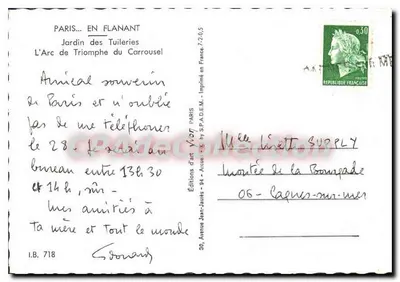 PARIS... EN FLANANT
Jardin des Tuileries
L'Arc de Triomphe du Carrousel
Amical souvenir
de Paris et n'oublie
pas de me téléphoner
le 28. Je serai au
bureau entre 13h30
et 14h, sûr-
Mes amitiés à
ta mère et tout le monde
Edouard
I.B. 718
Editions d'art YVON PARIS
30, Avenue Jean-Jaurès - 94 - Arcueil
by S.P.A.D.E.M. - Imprimé en France 7-2-0,5
0,30
REPUBLIQUE FRANÇAISE
Melle
Montée de la Bourgade
06 - Cagnes-sur-mer